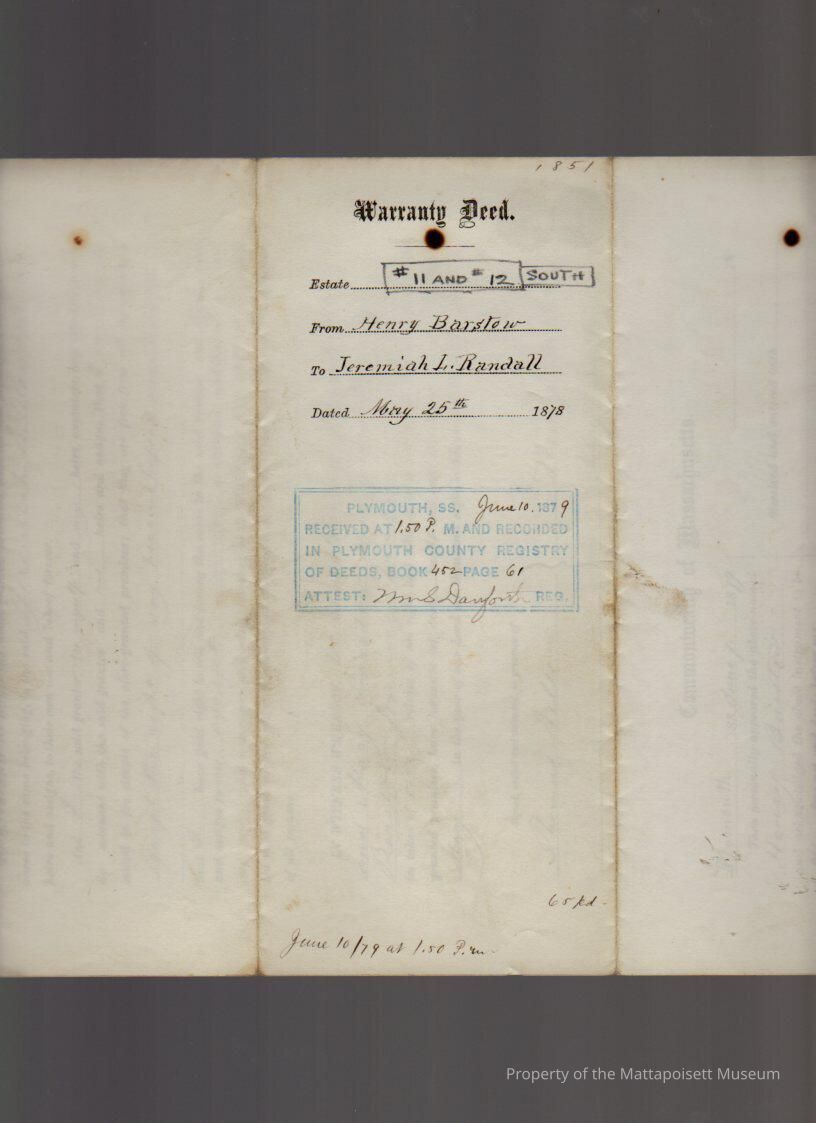 1851
Warranty Deed.
Estate # 11 AND # 12 SOUTH
From Henry Barstow
To Jeremiah L. Randall
Dated May 25th 1878
PLYMOUTH, SS. June 10. 1879
RECEIVED AT 1.50 P. M. AND RECORDED
IN PLYMOUTH COUNTY REGISTRY
OF DEEDS, BOOK 452 PAGE 61
ATTEST: Wm S Danforth REG.
65 pd.
June 10/79 at 1.50 P.m.
Property of the Mattapoisett Museum